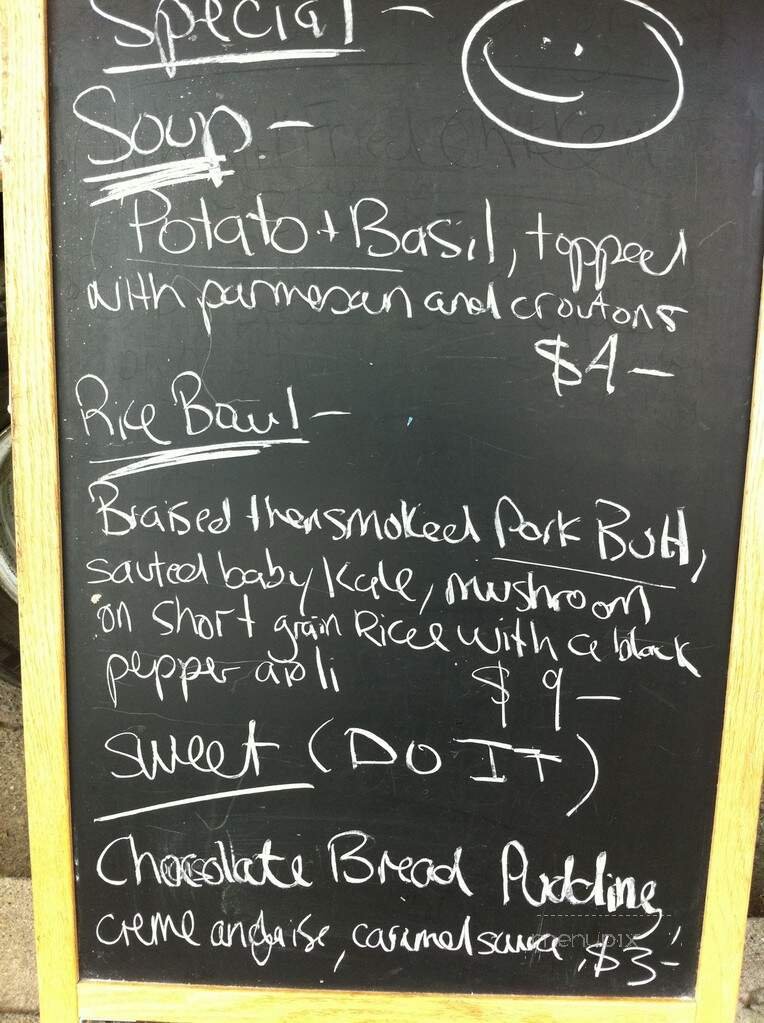 Special -
Soup -
Potato + Basil, topped
with parmesan and croutons
$4 -
Rice Bowl -
Braised then smoked Pork Butt,
sauted baby Kale, mushroom
on short grain Rice with a black
pepper aioli
$9 -
sweet (DO IT)
Chocolate Bread Pudding,
creme anglaise, caramel sauce, $3 -
menupix